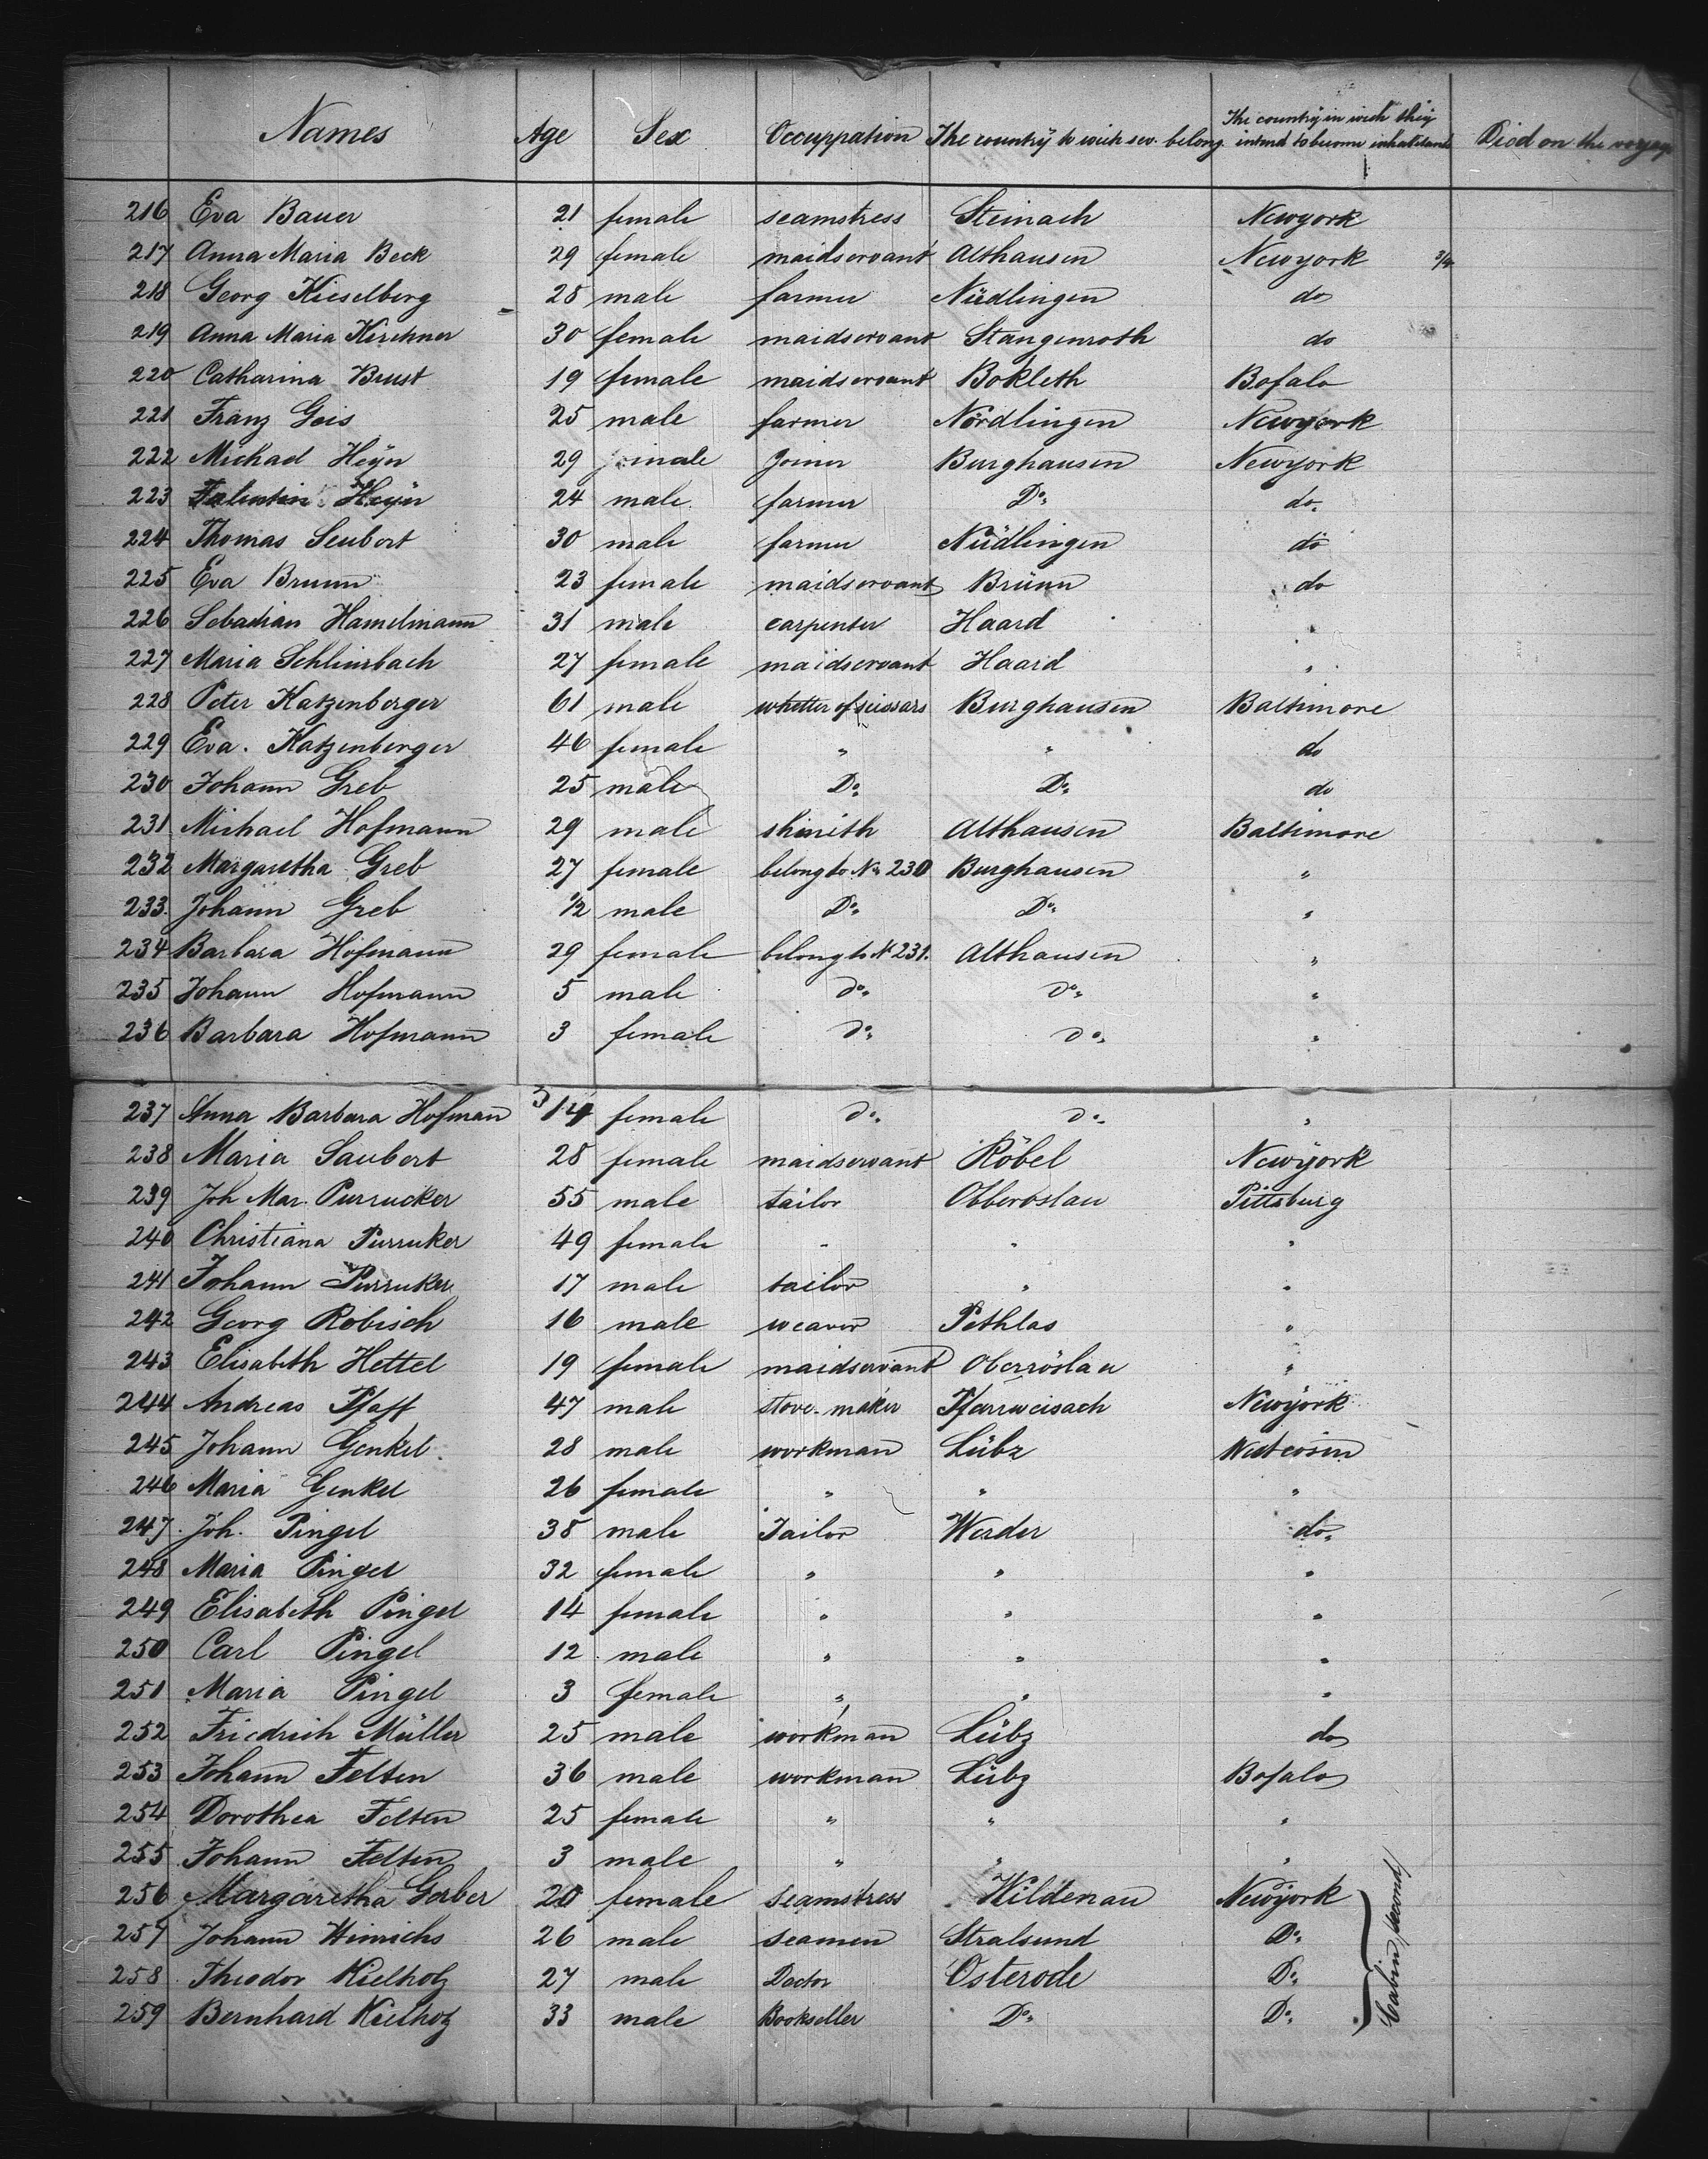 Names Age Sex Occuppation The country to wich sev. belong. The country in wich they intend to become inhabitants Died on the voyage
216 Eva Bauer 21 female seamstress Steinach Newyork
217 Anna Maria Beck 29 female maidservant Althausen Newyork 3/4
218 Georg Kieselberg 28 male farmer Nüdlingen do
219 Anna Maria Kirchner 30 female maidservant Stangenroth do
220 Catharina Brust 19 female maidservant Bokleth Bofalo
221 Franz Geis 25 male farmer Nördlingen Newyork
222 Michael Heÿn 29 male Joiner Burghausen Newyork
223 Falentin Heÿn 24 male farmer Do: do.
224 Thomas Seubert 30 male farmer Nüdlingen do
225 Eva Brunn 23 female maidservant Brünn do
226 Sebastian Hamelmann 31 male carpenter Haard "
227 Maria Schlimbach 27 female maidservant Haard "
228 Peter Katzenberger 61 male whetter of scissars Burghausen Baltimore
229 Eva. Katzenberger 46 female " " do
230 Johann Greb 25 male Do: Do: do
231 Michael Hofmann 29 male shmith Althausen Baltimore
232 Margaretha Greb 27 female belong to No 230 Burghausen "
233. Johann Greb 1/2 male Do: Do: "
234 Barbara Hofmann 29 female belong to No 231. Althausen "
235 Johann Hofmann 5 male do: do: "
236 Barbara Hofmann 3 female do: do: "
237 Anna Barbara Hofman 1/4 female do: do: "
238 Maria Saubert 28 female maidservant Röbel Newÿork
239 Joh Mar. Purrucker 55 male tailor Obberoslau Pittsburg
240 Christiana Purruker 49 female " " "
241 Johann Purruker 17 male tailor " "
242 Georg Robisch 16 male weaver Pethlas "
243 Elisabeth Hettel 19 female maidservant Oberröslau "
244 Andreas Pfaff 47 male stove-maker Pfarrweisach Newÿork
245 Johann Genkel 28 male workman Lübz
246 Maria Genkel 26 female " " "
247. Joh. Pingel 38 male Tailor Werder do.
248 Maria Pingel 32 female " " "
249 Elisabeth Pingel 14 female " " "
250 Carl Pingel 12 male " " "
251 Maria Pingel 3 female " " "
252 Friedrich Müller 25 male workman Lübz do
253 Johann Felten 36 male workman Lübz Bofalo
254 Dorothea Felten 25 female " " "
255 Johann Felten 3 male " " "
256 Margaretha Gerber 20 female seamstress Hildenau Newÿork
257 Johann Hinrichs 26 male seamen Stralsund Do:
258 Theodor Kielholz 27 male Doctor Osterode Do:
259 Bernhard Kielholz 33 male Bookseller Do: Do:
Cabin, second